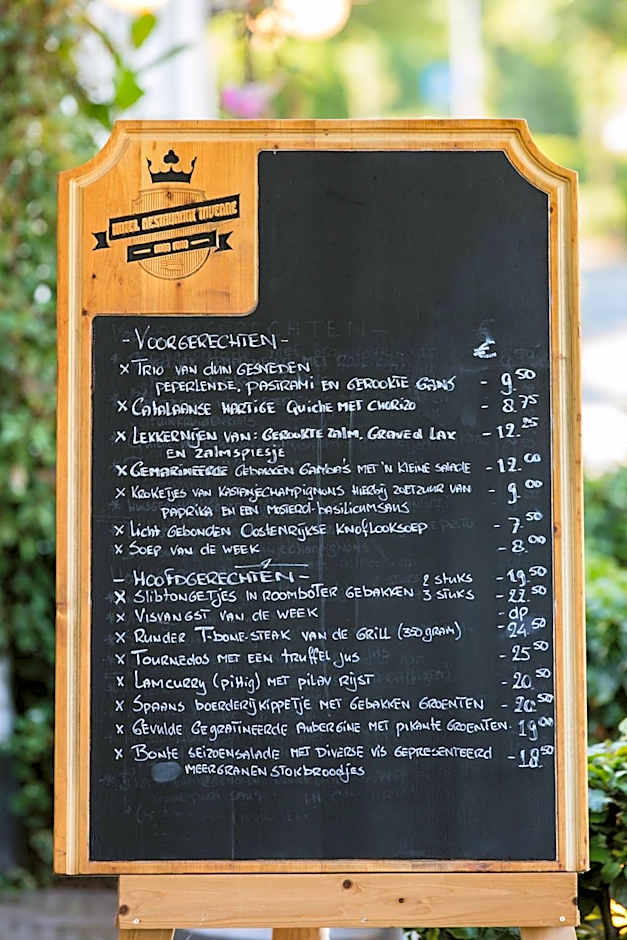 - VOORGERECHTEN - €
x TRIO VAN DUN GESNEDEN
PEPERLENDE, PASTRAMI EN GEROOKTE GANS - 9.50
x CATALAANSE HARTIGE QUICHE MET CHORIZO - 8.75
x LEKKERNIJEN VAN: GEROOKTE ZALM, GRAVED LAX - 12.25
EN ZALMSPIESJE
x GEMARINEERDE GEBAKKEN GAMBA'S MET 'N KLEINE SALADE - 12.00
x KROKETJES VAN KASTANJECHAMPIGNONS HIERBIJ ZOETZUUR VAN - 9.00
PAPRIKA EN EEN MOSTERD-BASILICUMSAUS
x LICHT GEBONDEN OOSTENRIJKSE KNOFLOOKSOEP - 7.50
x SOEP VAN DE WEEK - 8.00
- HOOFDGERECHTEN - 2 STUKS - 19.50
x SLIBTONGETJES IN ROOMBOTER GEBAKKEN 3 STUKS - 22.50
x VISVANGST VAN DE WEEK - dp
x RUNDER T-BONE-STEAK VAN DE GRILL (350 GRAM) - 24.50
x TOURNEDOS MET EEN TRUFFEL JUS - 25.50
x LAMCURRY (PITTIG) MET PILAV RIJST - 20.50
x SPAANS BOERDERIJKIPPETJE MET GEBAKKEN GROENTEN - 20.50
x GEVULDE GEGRATINEERDE AUBERGINE MET PIKANTE GROENTEN. 19.00
x BONTE SEIZOENSALADE MET DIVERSE VIS GEPRESENTEERD - 18.50
MEERGRANEN STOKBROODJES